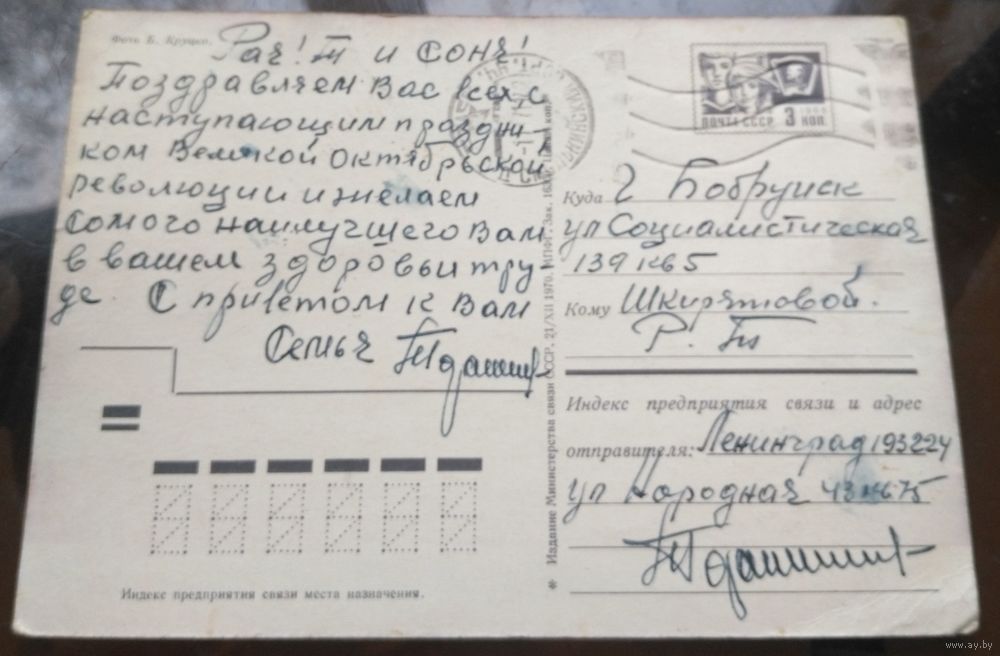 Фото Б. Круцко.
Рая! и Соня!
Поздравляем Вас всех с
наступающим праздни-
ком Великой Октябрьской
революции и желаем
самого наилучшего Вам
в вашем здоровьи тру-
де. С приветом к Вам
Семья
ПОЧТА СССР 3 КОП.
Куда г Бобруйск
ул Социалистическая
139 кв 5
Кому Шкирятовой.
Р.
Индекс предприятия связи и адрес
отправителя: Ленинград 193224
ул Народная 43 кв 75
Индекс предприятия связи места назначения.
* Издание Министерства связи СССР. 21/XII 1970.
www.ay.by